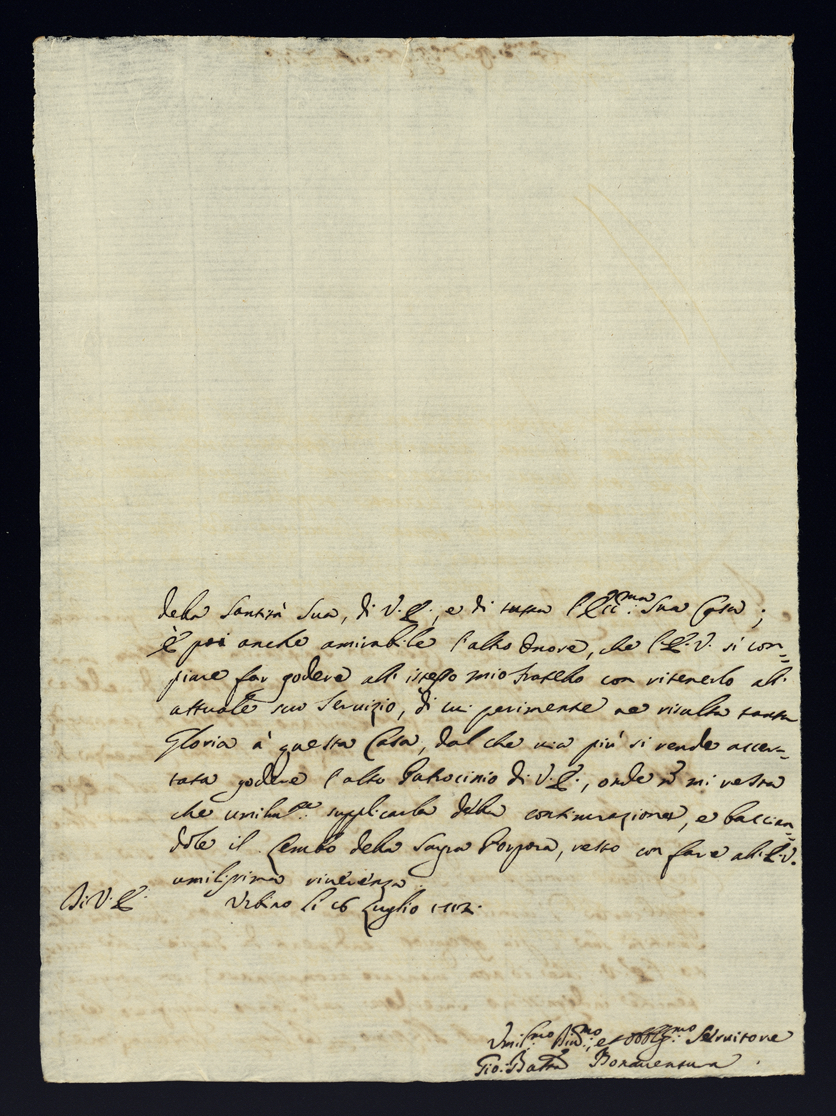 della Santità Sua, di V. E., e di tutta l'Ecc:ma Sua Casa;
È poi anche amirabile l'alto onore, che l'E. V. si con=
piace far godere all'istesso mio fratello con ritenerlo all'
attuale suo Seruizio, di cui parimente ne risulta tanta
Gloria à questa Casa, dal che uia più si rende accer=
tata godere l'alto Patrocinio di V. E., onde nō mi resta
che umilm:te supplicarla della continuazione, e baccian=
dole il Lembo della Sagra Porpora, resto con fare all'E. V.
umilissima riuerenza
Di V. E. Urbino li 16 Luglio
Vmil:mo Diu:mo, e obblig:mo Seruitore
Gio: Batta Bonauentura